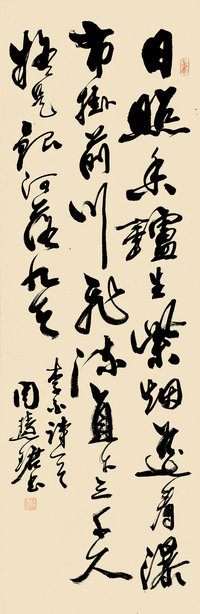 日照香爐生紫烟遥看瀑
布掛前川飛流直下三千尺
疑是銀河落九天
李白詩一首
周慧珺书